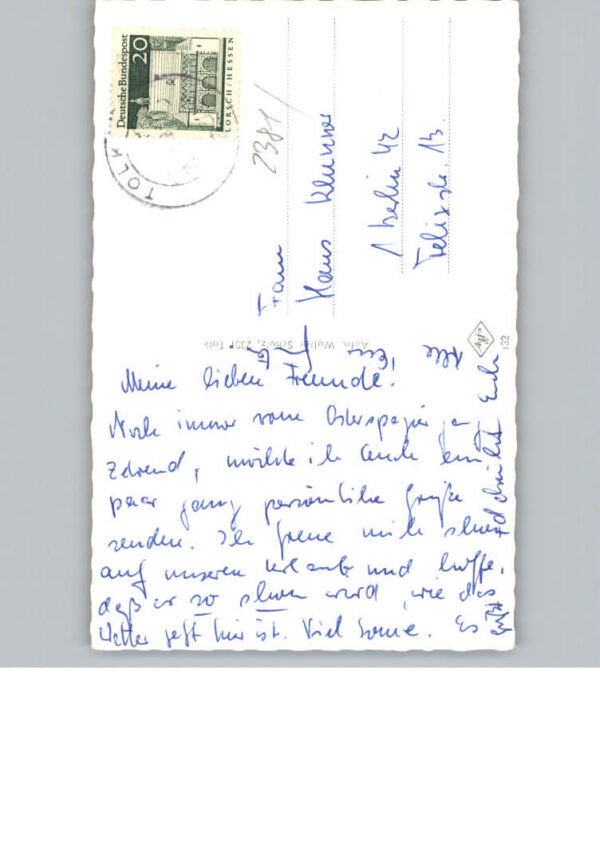 Deutsche Bundespost
20
LORSCH/HESSEN
TOLK
2381/
Hans
1 Berlin 42
Felixstr. 13.
Aufn. Walter Schütz, 2381 Tolk
132
Meine lieben Freunde!
Noch immer vom Osterspaziergang
zehrend, möchte ich Euch ein
paar ganz persönliche Grüße
senden. Ich freue mich schon
auf unseren Urlaub und hoffe,
daß er so schön wird, wie das
Wetter jetzt hier ist. Viel Sonne. Es
Euch
Alle